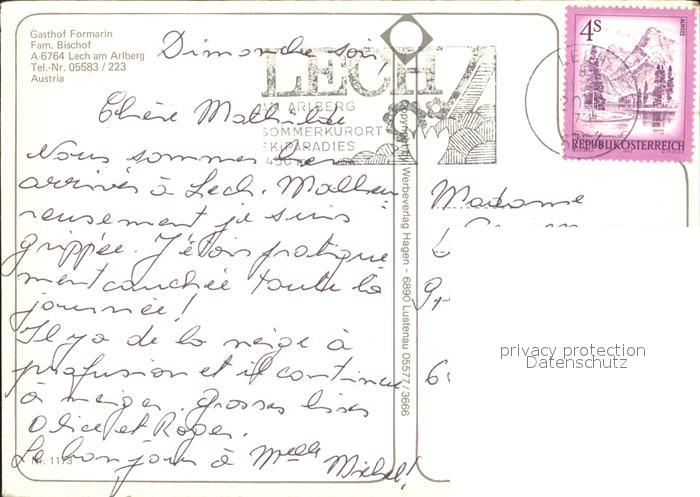 Gasthof Formarin
Fam. Bischof
A-6764 Lech am Arlberg
Tel.-Nr. 05583 / 223
Austria
Dimanche soir,
Chère Mathilde
Nous sommes bien
arrivés à Lech. Malheu-
reusement je suis
grippée. J'étais pratique
ment couchée toute la
journée!
Il y a de la neige à
profusion et il continue
à neiger. Grosses bises
Alice et Roger.
Le bonjour à Melle Michel!
Nr. 1173
LECH
ARLBERG
SOMMERKURORT
SKIPARADIES
Werbeverlag Hagen - 6890 Lustenau 05577/3666
4S
REPUBLIK ÖSTERREICH
Madame
privacy protection
Datenschutz